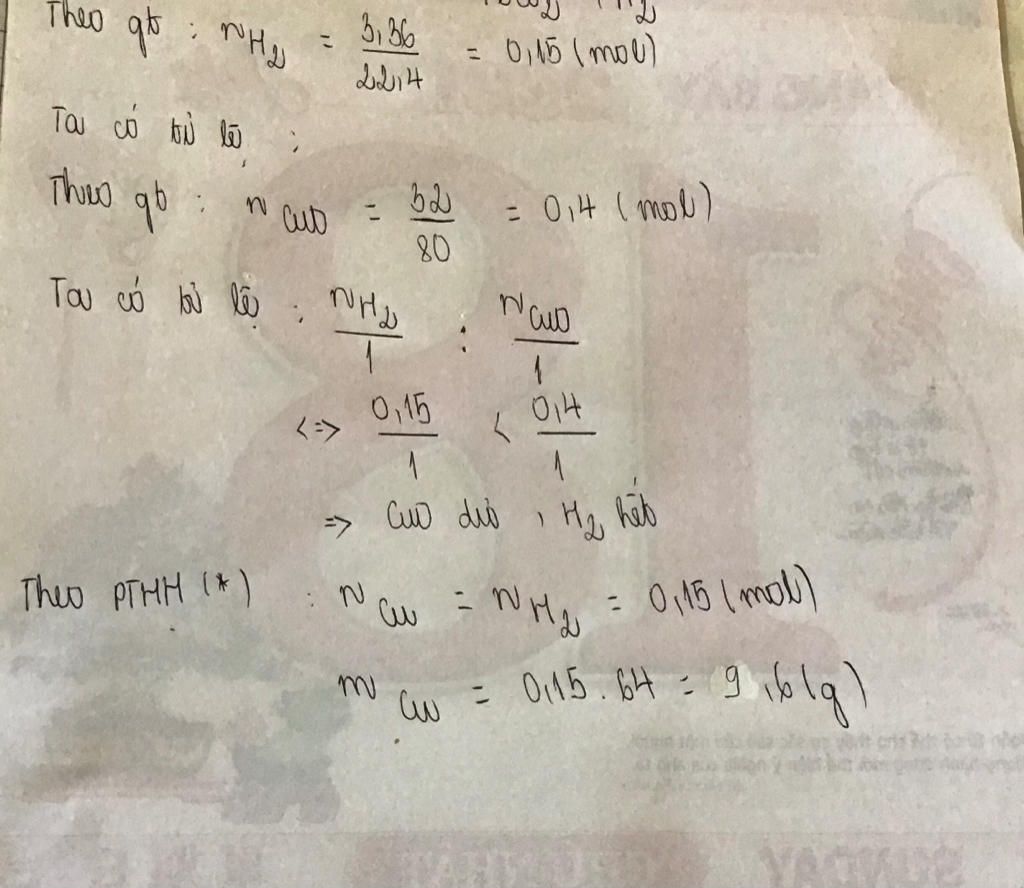 Theo qt : nH2 = 3,36/22,4 = 0,15 (mol)
Ta có tỉ lệ :
Theo qt : nCuO = 32/80 = 0,4 (mol)
Ta có tỉ lệ : nH2/1 : nCuO/1
<=> 0,15/1 < 0,4/1
=> CuO dư , H2 hết
Theo PTHH (*) : nCu = nH2 = 0,15 (mol)
mCu = 0,15 . 64 = 9,6 (g)